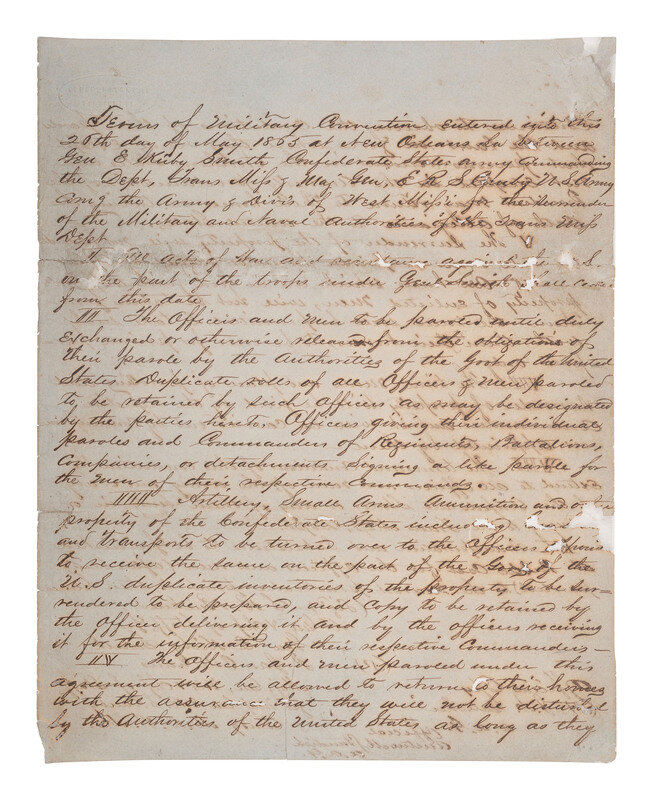 Terms of Military Convention entered into this
26th day of May 1865 at New Orleans La between
Gen E Kirby Smith Confederate States Army Commanding
the Dept, Trans Miss & Maj Gen, E R S Canby U.S. Army
Com'g the Army & Divis of West Miss'i for the surrender
of the Military and Naval Authorities of the Trans Miss
Dept
All acts of War and resistance against U.S
on the part of the troops under Genl Smith shall cease
from this date
III The Officers and men to be paroled until duly
Exchanged or otherwise released from the obligations of
their parole by the Authorities of the Govt of the United
States Duplicate rolls of all Officers & Men paroled
to be retained by such Officers as may be designated
by the parties hereto. Officers giving their individual
paroles and Commanders of Regiments, Battalions,
Companies, or detachments signing a like parole for
the men of their respective Commands.
IIII Artillery, Small Arms Ammunition and
property of the Confederate States including
and transports to be turned over to the Officers
to receive the same on the part of the the
U.S. duplicate inventories of the property to be sur-
rendered to be prepared, and Copy to be retained by
the Officer delivering it and by the officer receiving
it for the information of their respective Commanders —
The Officers and men paroled under this
agreement will be allowed to return to their homes
with the assurance that they will not be disturbed
by the Authorities of the United States as long as they